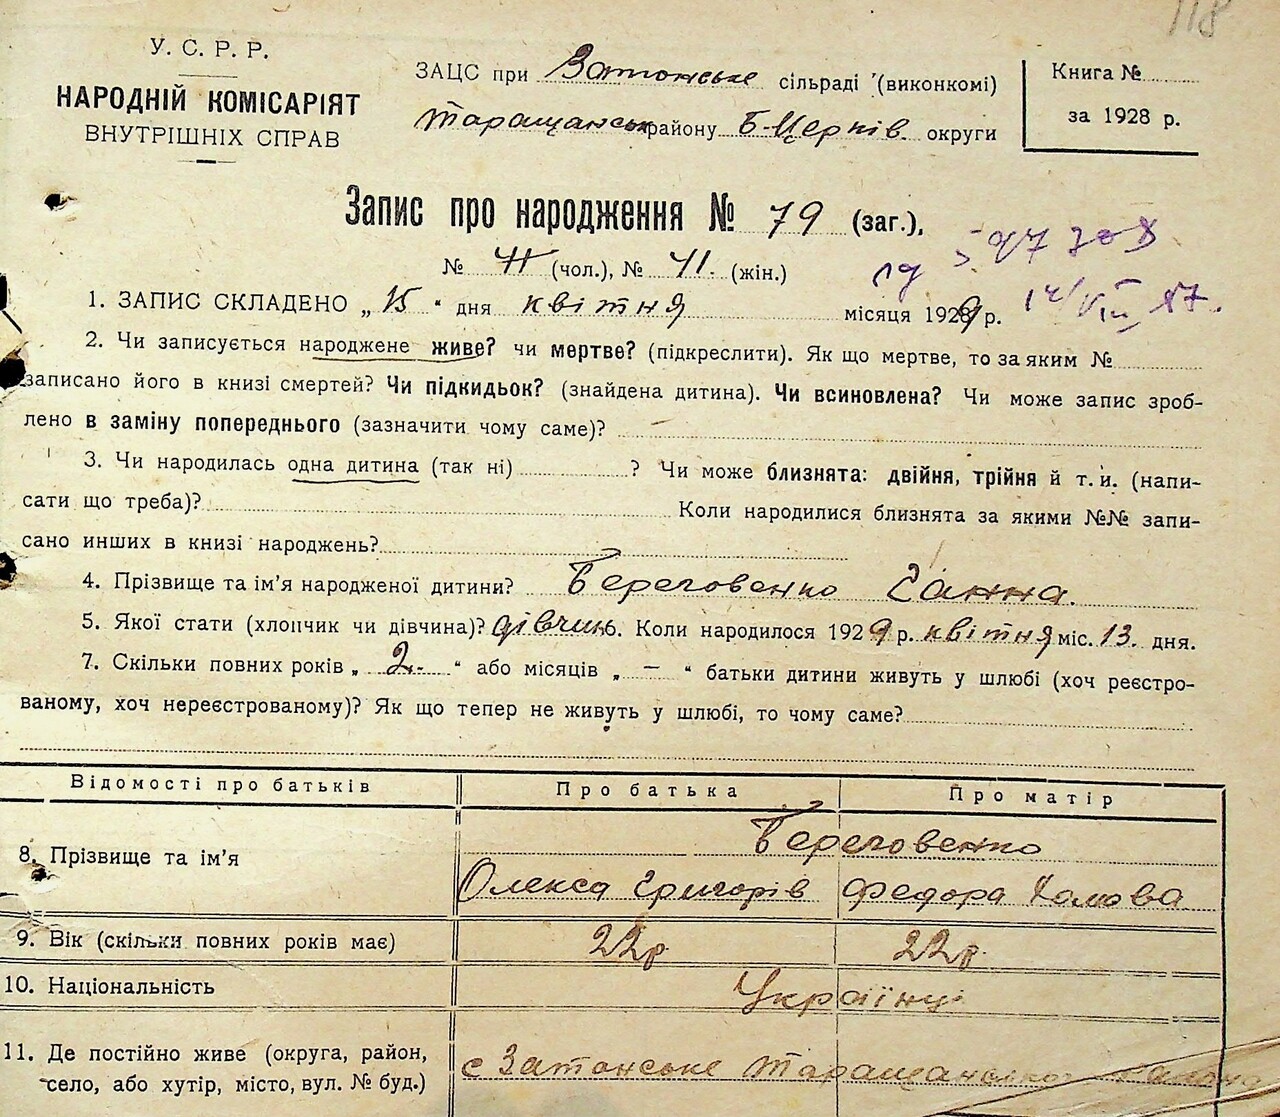 118
У. С. Р. Р.
НАРОДНІЙ КОМІСАРІЯТ
ВНУТРІШНІХ СПРАВ
ЗАЦС при Затонське сільраді (виконкомі)
Таращанськ району Б-Церків. округи
Книга №
за 1928 р.
Запис про народження № 79 (заг.),
№ (чол.), № 41. (жін.)
1. ЗАПИС СКЛАДЕНО „15“ дня квітня місяця 1929 р.
2. Чи записується народжене живе? чи мертве? (підкреслити). Як що мертве, то за яким №
записано його в книзі смертей? Чи підкидьок? (знайдена дитина). Чи всиновлена? Чи може запис зроб-
лено в заміну попереднього (зазначити чому саме)?
3. Чи народилась одна дитина (так ні) ? Чи може близнята: двійня, трійня й т. и. (напи-
сати що треба)? Коли народилися близнята за якими №№ запи-
сано инших в книзі народжень?
4. Прізвище та ім'я народженої дитини? Береговенко Ганна.
5. Якої стати (хлопчик чи дівчина)? дівчин. Коли народилося 1929 р. квітня міс. 13. дня.
7. Скільки повних років „2.“ або місяців „—“ батьки дитини живуть у шлюбі (хоч реєстро-
ваному, хоч нереєстрованому)? Як що тепер не живуть у шлюбі, то чому саме?
Відомості про батьків Про батька Про матір
8. Прізвище та ім'я Береговенко
Олекса Григорів Федора Хомова
9. Вік (скільки повних років має) 22р 22р.
10. Національність Українці
11. Де постійно живе (округа, район,
село, або хутір, місто, вул. № буд.) с Затонське Таращанського